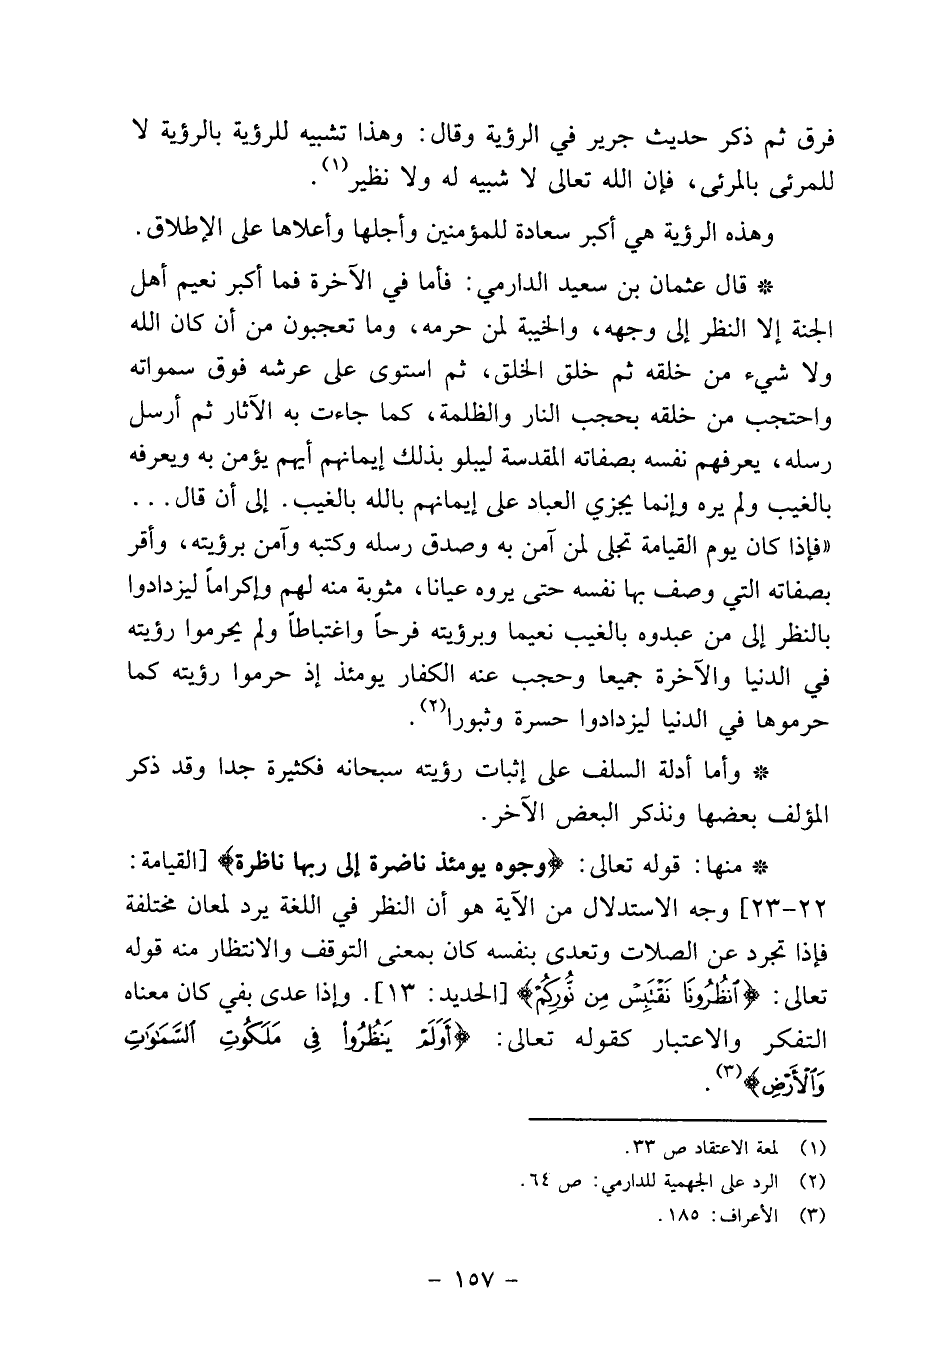 فرق ثم ذكر حديث جرير في الرؤية وقال: وهذا تشبيه للرؤية بالرؤية لا
للمرئى بالمرئى، فإن الله تعالى لا شبيه له ولا نظير(١).
وهذه الرؤية هي أكبر سعادة للمؤمنين وأجلها وأعلاها على الإطلاق.
* قال عثمان بن سعيد الدارمي: فأما في الآخرة فما أكبر نعيم أهل
الجنة إلا النظر إلى وجهه، والخيبة لمن حرمه، وما تعجبون من أن كان الله
ولا شيء من خلقه ثم خلق الخلق، ثم استوى على عرشه فوق سمواته
واحتجب من خلقه بحجب النار والظلمة، كما جاءت به الآثار ثم أرسل
رسله، يعرفهم نفسه بصفاته المقدسة ليبلو بذلك إيمانهم أيهم يؤمن به ويعرفه
بالغيب ولم يره وإنما يجزي العباد على إيمانهم بالله بالغيب. إلى أن قال...
«فإذا كان يوم القيامة تجلى لمن آمن به وصدق رسله وكتبه وآمن برؤيته، وأقر
بصفاته التي وصف بها نفسه حتى يروه عيانا، مثوبة منه لهم وإكراماً ليزدادوا
بالنظر إلى من عبدوه بالغيب نعيما وبرؤيته فرحاً واغتباطاً ولم يحرموا رؤيته
في الدنيا والآخرة جميعا وحجب عنه الكفار يومئذ إذ حرموا رؤيته كما
حرموها في الدنيا ليزدادوا حسرة وثبورا(٢).
* وأما أدلة السلف على إثبات رؤيته سبحانه فكثيرة جدا وقد ذكر
المؤلف بعضها ونذكر البعض الآخر.
* منها: قوله تعالى: ﴿وجوه يومئذ ناضرة إلى ربها ناظرة﴾ [القيامة:
٢٢-٢٣] وجه الاستدلال من الآية هو أن النظر في اللغة يرد لمعان مختلفة
فإذا تجرد عن الصلات وتعدى بنفسه كان بمعنى التوقف والانتظار منه قوله
تعالى: ﴿ٱنظُرُونَا نَقْتَبِسْ مِن نُّورِكُمْ﴾ [الحديد: ١٣]. وإذا عدى بفي كان معناه
التفكر والاعتبار كقوله تعالى: ﴿أَوَلَمْ يَنظُرُوا۟ فِى مَلَكُوتِ ٱلسَّمَٰوَٰتِ
وَٱلْأَرْضِ﴾(٣).
(١) لمعة الاعتقاد ص ٣٣.
(٢) الرد على الجهمية للدارمي: ص ٦٤.
(٣) الأعراف: ١٨٥.
- ١٥٧ -